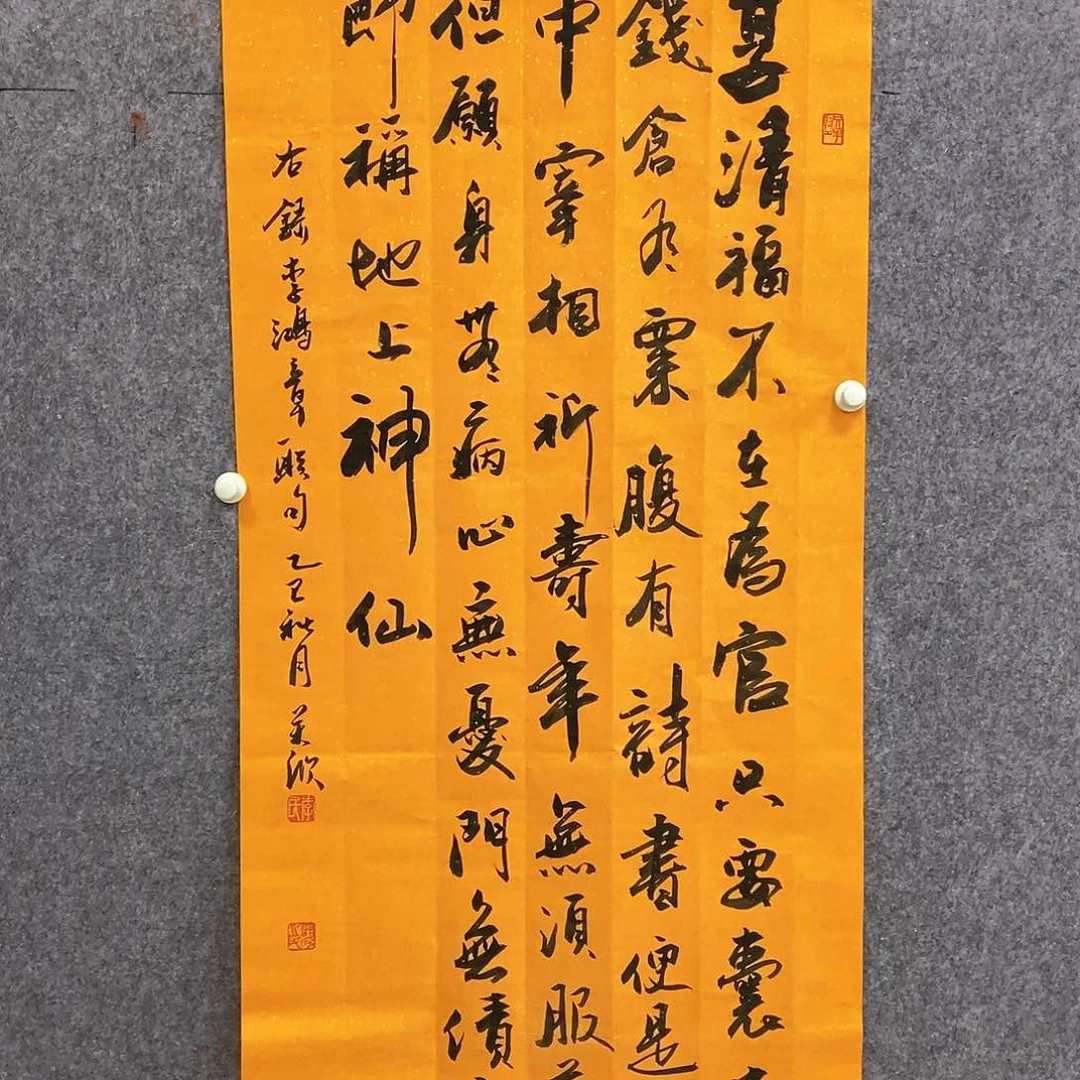 享清福不在為官只要囊
錢倉有粟腹有詩書便是
中宰相祈壽年無須服
但願身無病心無憂門無債
即稱地上神仙
右錄李鴻章聯句乙巳秋月